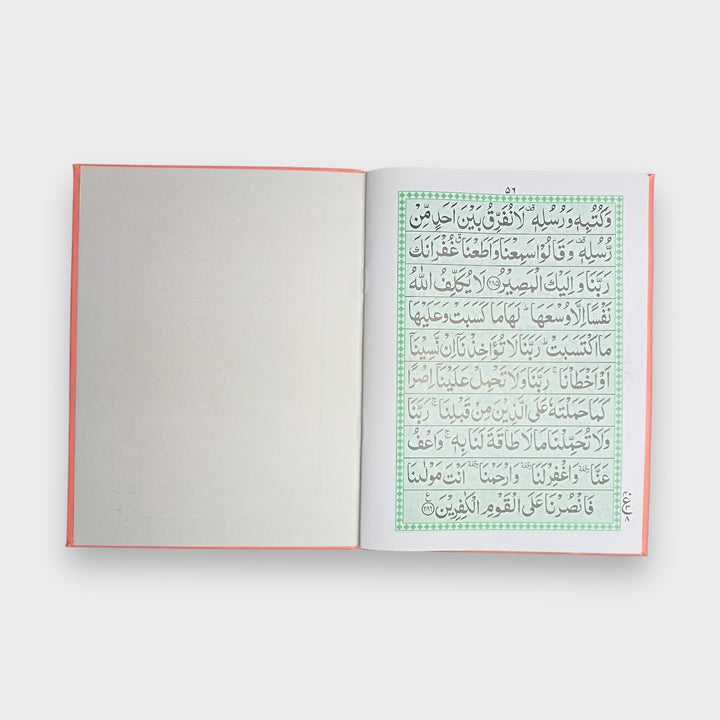 ۵۶
وَكُتُبِهٖ وَرُسُلِهٖ ۟ لَا نُفَرِّقُ بَيْنَ اَحَدٍ مِّنْ
رُّسُلِهٖ ۟ وَقَالُوْا سَمِعْنَا وَاَطَعْنَا ٘ غُفْرَانَكَ
رَبَّنَا وَاِلَيْكَ الْمَصِيْرُ ﴿۲۸۵﴾ لَا يُكَلِّفُ اللّٰهُ
نَفْسًا اِلَّا وُسْعَهَا ؕ لَهَا مَا كَسَبَتْ وَعَلَيْهَا
مَا اكْتَسَبَتْ ؕ رَبَّنَا لَا تُؤَاخِذْنَاۤ اِنْ نَّسِيْنَاۤ
اَوْ اَخْطَاْنَا ۚ رَبَّنَا وَلَا تَحْمِلْ عَلَيْنَاۤ اِصْرًا
كَمَا حَمَلْتَهٗ عَلَى الَّذِيْنَ مِنْ قَبْلِنَا ۚ رَبَّنَا
وَلَا تُحَمِّلْنَا مَا لَا طَاقَةَ لَنَا بِهٖ ۚ وَاعْفُ
عَنَّا وقفة وَاغْفِرْ لَنَا وقفة وَارْحَمْنَا وقفة اَنْتَ مَوْلٰىنَا
فَانْصُرْنَا عَلَى الْقَوْمِ الْكٰفِرِيْنَ ﴿۲۸۶﴾
ع
۸